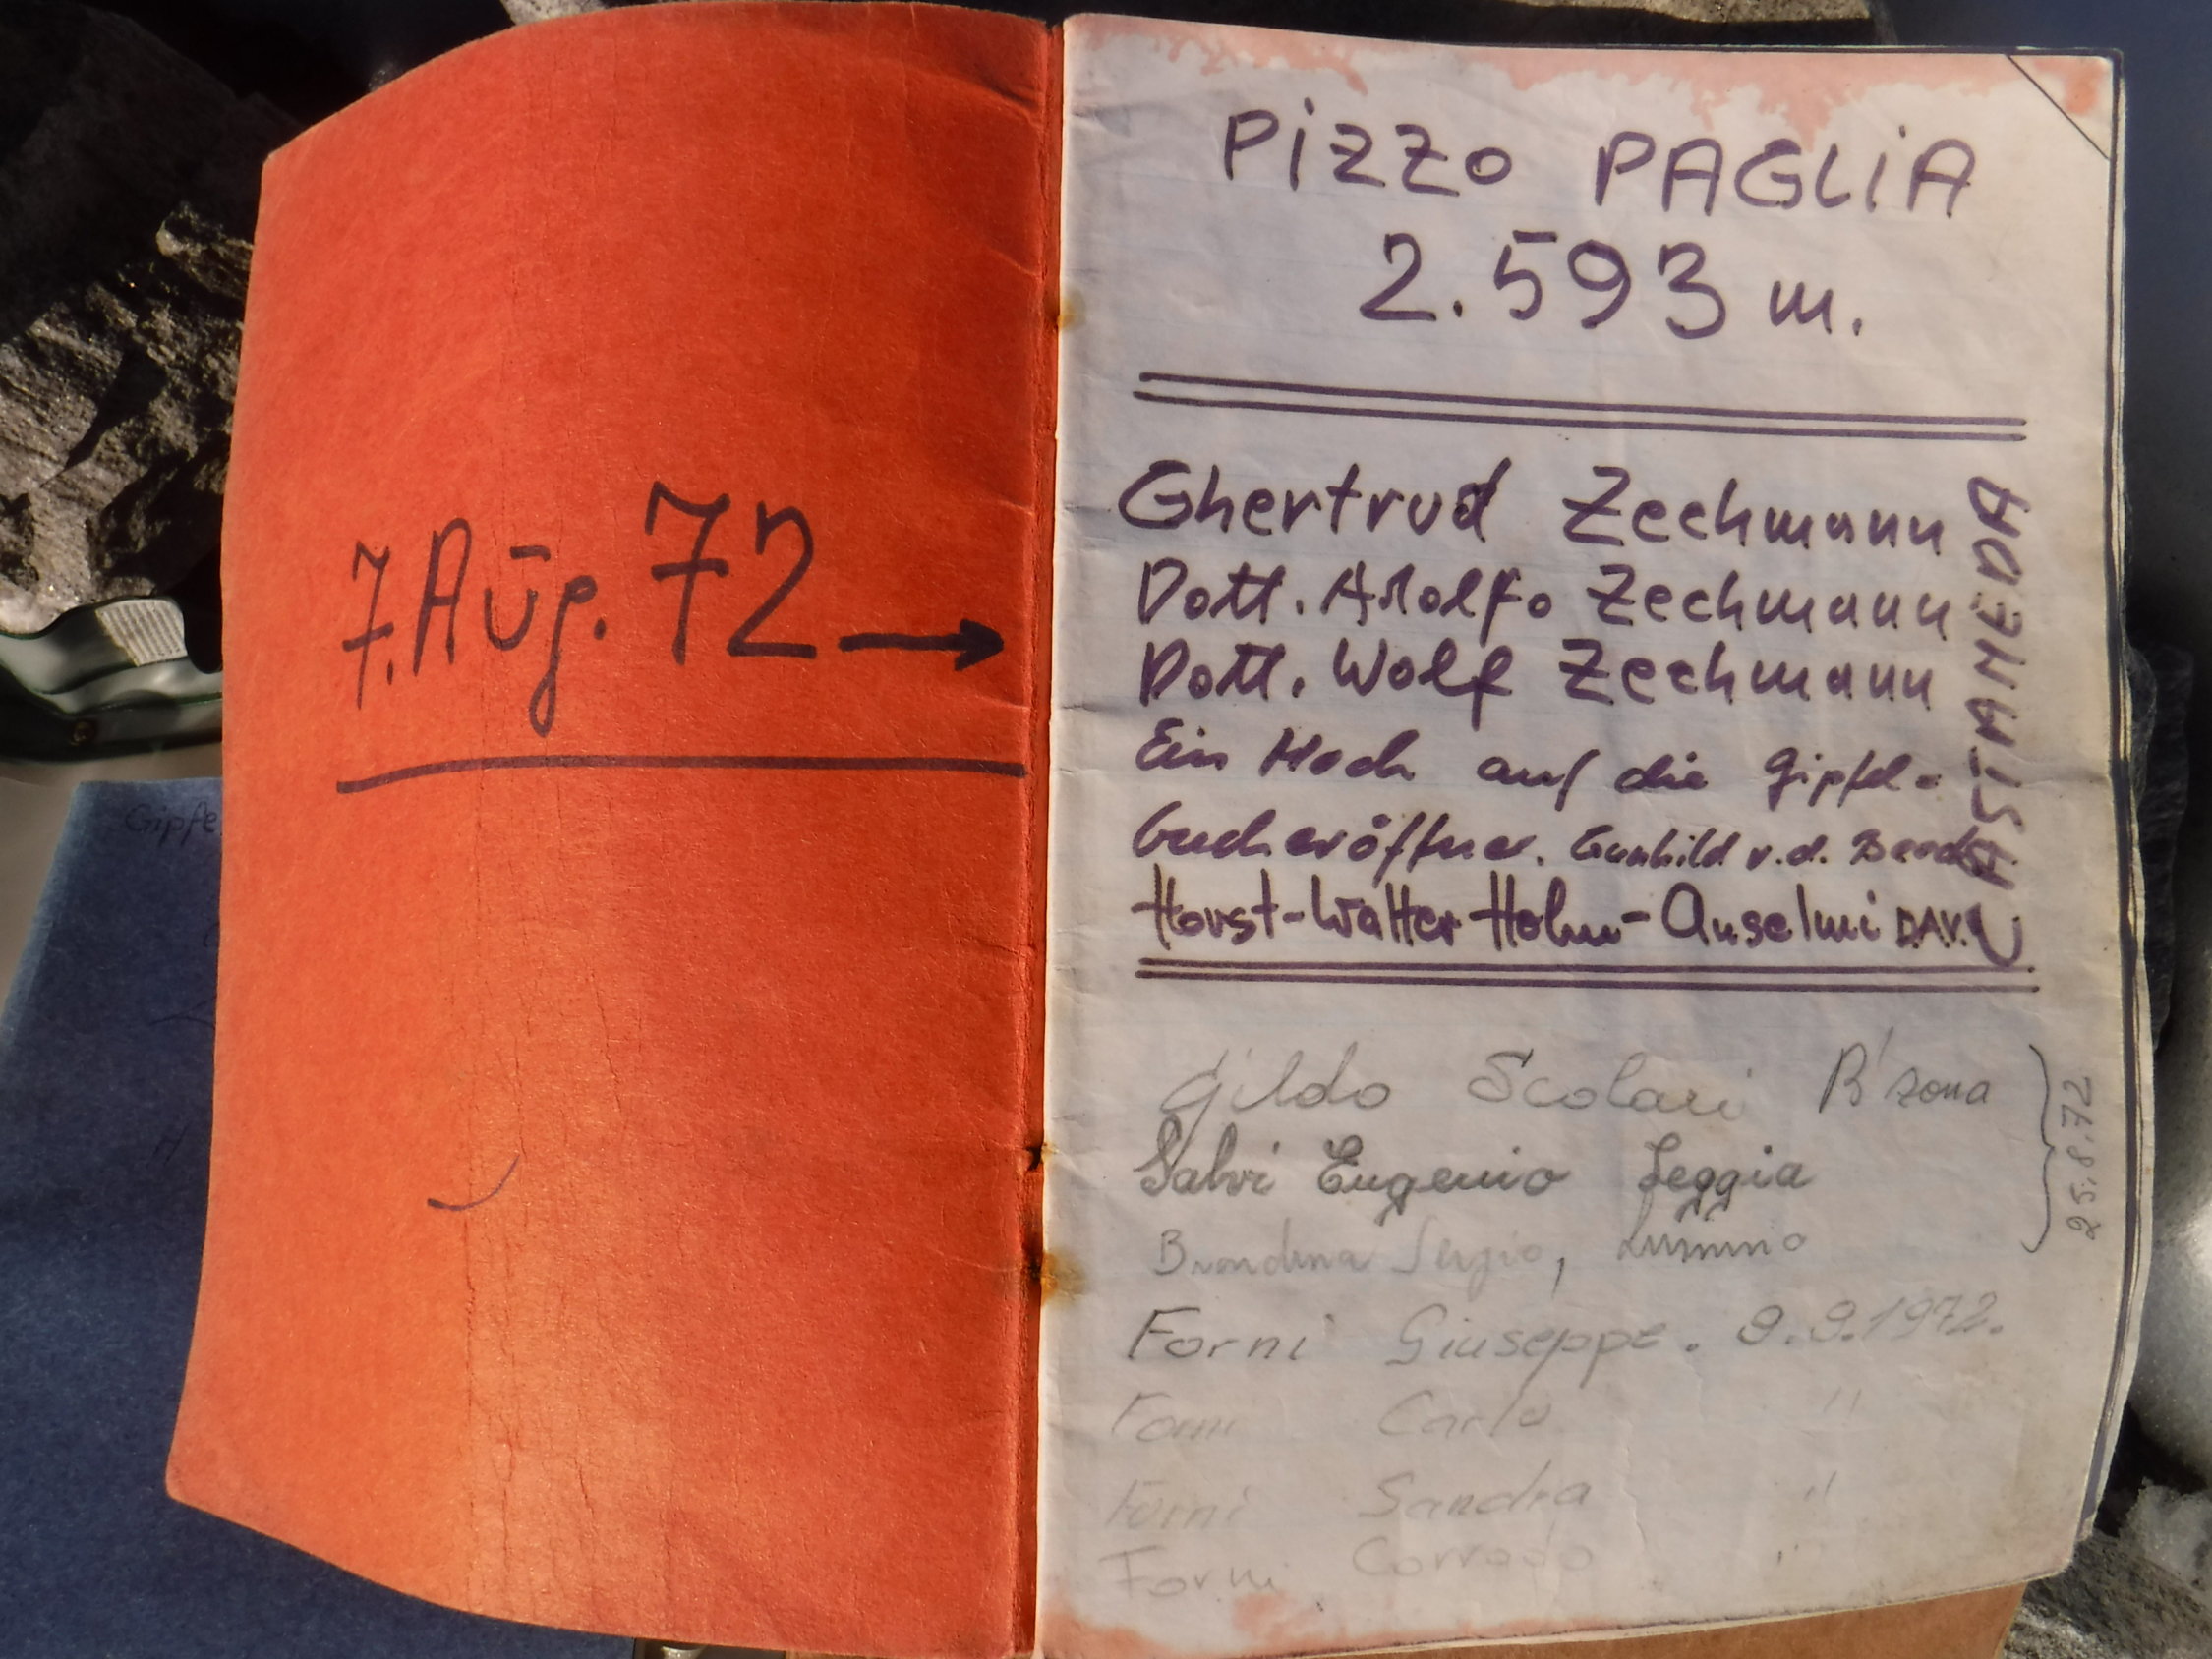 Gipfe
7. Aūg. 72 →
PiZZO PAGLiA
2.593 m.
Ghertrud Zechmann
Dott. Adolfo Zechmann
Dott. Wolf Zechmann
Ein Hoch auf die Gipfel-
bucheröffner. Gunhild v.d.
Horst-Walter Holm-Anselmi DAV.
CASTANEDA
Gildo Scolari B'zona
Salvi Eugenio Leggia
Sergio, Lumino
25.8.72
Forni Giuseppe. 9.9.1972.
Forni Carlo "
Forni Sandra "
Forni Corrado "